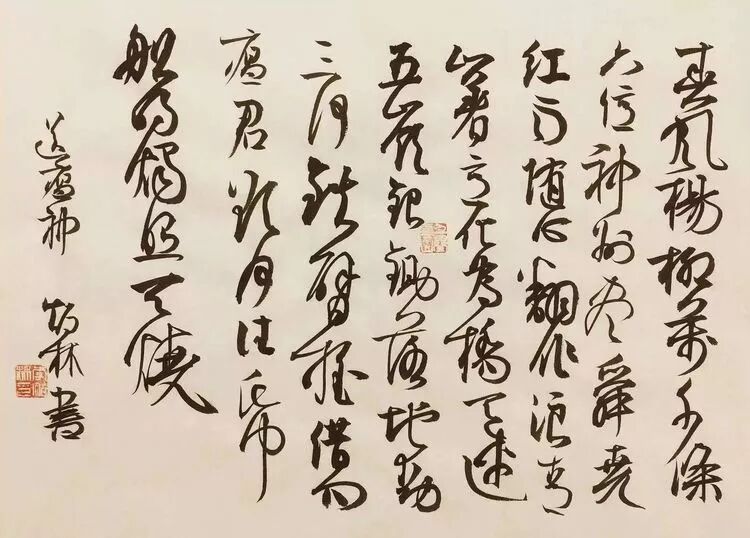 春風楊柳萬千條
六億神州盡舜堯
紅雨隨心翻作浪青
山着意化為橋天連
五嶺銀鋤落地動
三河鐵臂搖借問
瘟君欲何往帋
船明燭照天燒
送瘟神 林書